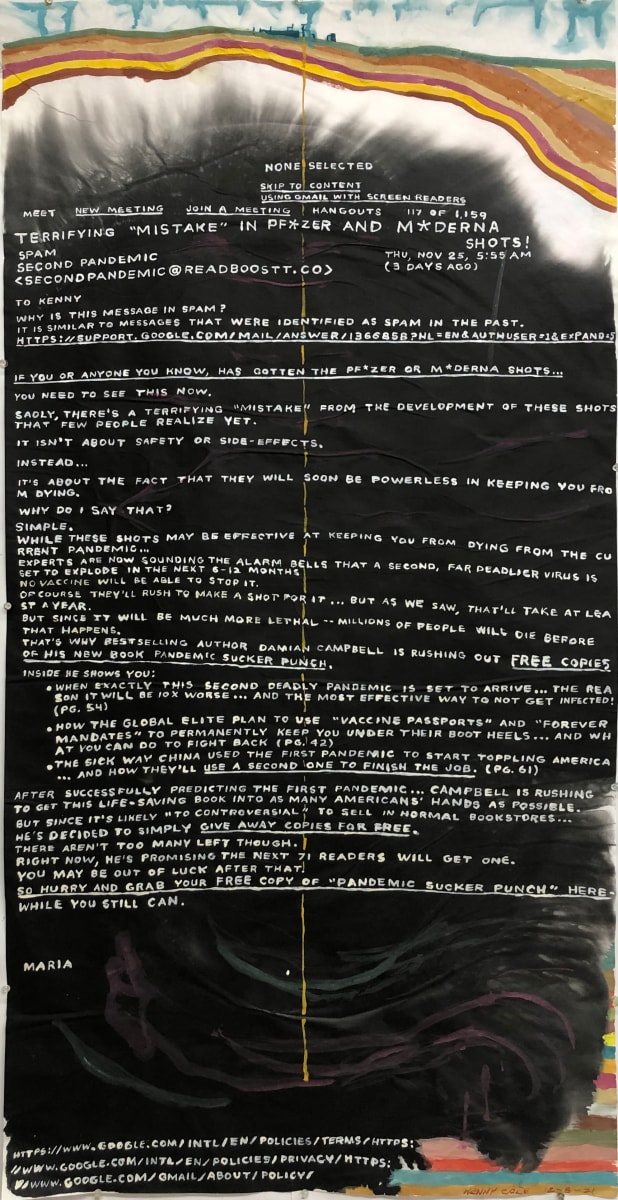 NONE SELECTED
SKIP TO CONTENT
USING GMAIL WITH SCREEN READERS
MEET NEW MEETING JOIN A MEETING HANGOUTS 117 OF 1,159
TERRIFYING "MISTAKE" IN PF*ZER AND M*DERNA
SHOTS!
SPAM
SECOND PANDEMIC
<SECONDPANDEMIC@READBOOSTT.CO>
THU, NOV 25, 5:55 AM
(3 DAYS AGO)
TO KENNY
WHY IS THIS MESSAGE IN SPAM?
IT IS SIMILAR TO MESSAGES THAT WERE IDENTIFIED AS SPAM IN THE PAST.
HTTPS://SUPPORT.GOOGLE.COM/MAIL/ANSWER/1366858?HL=EN&AUTHUSER=1&EXPAND=5
IF YOU OR ANYONE YOU KNOW, HAS GOTTEN THE PF*ZER OR M*DERNA SHOTS...
YOU NEED TO SEE THIS NOW.
SADLY, THERE'S A TERRIFYING "MISTAKE" FROM THE DEVELOPMENT OF THESE SHOTS
THAT FEW PEOPLE REALIZE YET.
IT ISN'T ABOUT SAFETY OR SIDE-EFFECTS.
INSTEAD...
IT'S ABOUT THE FACT THAT THEY WILL SOON BE POWERLESS IN KEEPING YOU FRO
M DYING.
WHY DO I SAY THAT?
SIMPLE.
WHILE THESE SHOTS MAY BE EFFECTIVE AT KEEPING YOU FROM DYING FROM THE CU
RRENT PANDEMIC...
EXPERTS ARE NOW SOUNDING THE ALARM BELLS THAT A SECOND, FAR DEADLIER VIRUS IS
SET TO EXPLODE IN THE NEXT 6-12 MONTHS
NO VACCINE WILL BE ABLE TO STOP IT.
OF COURSE THEY'LL RUSH TO MAKE A SHOT FOR IT... BUT AS WE SAW, THAT'LL TAKE AT LEA
ST A YEAR.
BUT SINCE IT WILL BE MUCH MORE LETHAL -- MILLIONS OF PEOPLE WILL DIE BEFORE
THAT HAPPENS.
THAT'S WHY BESTSELLING AUTHOR DAMIAN CAMPBELL IS RUSHING OUT FREE COPIES
OF HIS NEW BOOK PANDEMIC SUCKER PUNCH.
INSIDE HE SHOWS YOU:
• WHEN EXACTLY THIS SECOND DEADLY PANDEMIC IS SET TO ARRIVE... THE REA
SON IT WILL BE 10X WORSE... AND THE MOST EFFECTIVE WAY TO NOT GET INFECTED!
(PG. 54)
• HOW THE GLOBAL ELITE PLAN TO USE "VACCINE PASSPORTS" AND "FOREVER
MANDATES" TO PERMANENTLY KEEP YOU UNDER THEIR BOOT HEELS... AND WH
AT YOU CAN DO TO FIGHT BACK (PG. 42)
• THE SICK WAY CHINA USED THE FIRST PANDEMIC TO START TOPPLING AMERICA
... AND HOW THEY'LL USE A SECOND ONE TO FINISH THE JOB. (PG. 61)
AFTER SUCCESSFULLY PREDICTING THE FIRST PANDEMIC... CAMPBELL IS RUSHING
TO GET THIS LIFE-SAVING BOOK INTO AS MANY AMERICANS' HANDS AS POSSIBLE.
BUT SINCE IT'S LIKELY "TO CONTROVERSIAL" TO SELL IN NORMAL BOOKSTORES...
HE'S DECIDED TO SIMPLY GIVE AWAY COPIES FOR FREE.
THERE AREN'T TOO MANY LEFT THOUGH.
RIGHT NOW, HE'S PROMISING THE NEXT 71 READERS WILL GET ONE.
YOU MAY BE OUT OF LUCK AFTER THAT.
SO HURRY AND GRAB YOUR FREE COPY OF "PANDEMIC SUCKER PUNCH" HERE-
WHILE YOU STILL CAN.
MARIA
HTTPS://WWW.GOOGLE.COM/INTL/EN/POLICIES/TERMS/HTTPS:
//WWW.GOOGLE.COM/INTL/EN/POLICIES/PRIVACY/HTTPS:
//WWW.GOOGLE.COM/GMAIL/ABOUT/POLICY/
KENNY COLE